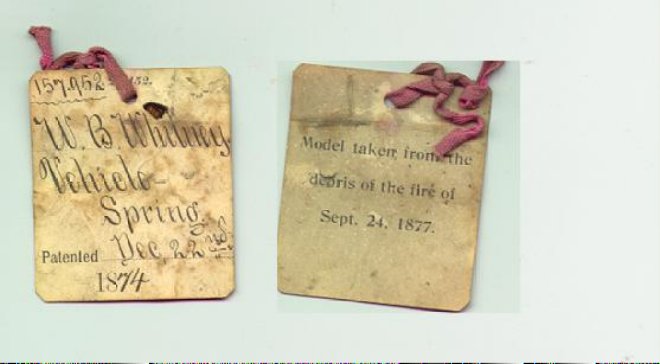 157,952
W. B. Whitney,
Vehicle-
Spring.
Patented Dec. 22nd
1874
Model taken from the
debris of the fire of
Sept. 24, 1877.